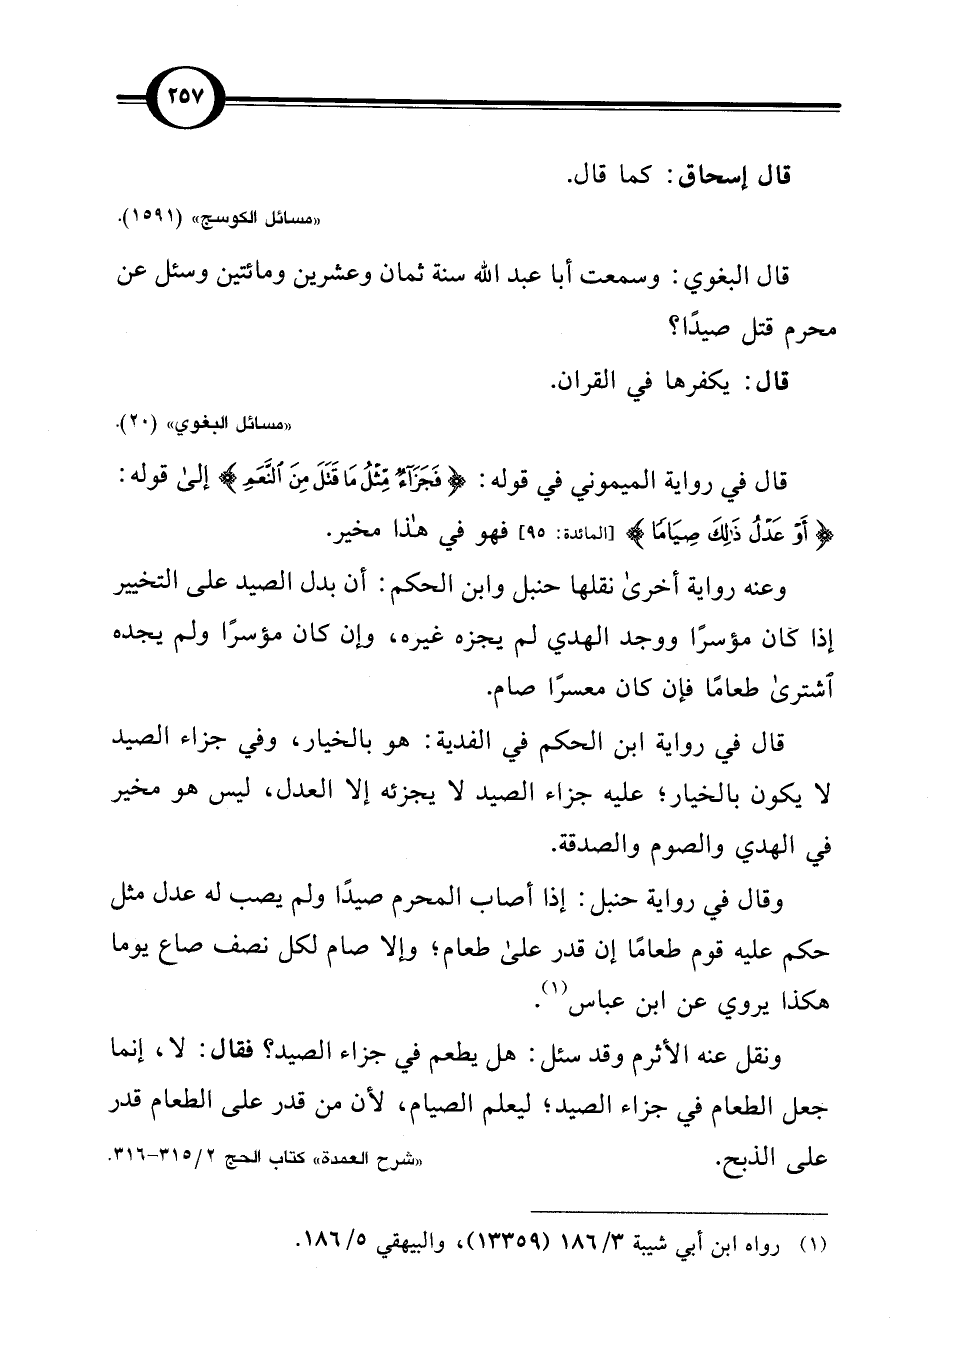 ٢٥٧
قال إسحاق: كما قال.
«مسائل الكوسج» (١٥٩١).
قال البغوي: وسمعت أبا عبد الله سنة ثمان وعشرين ومائتين وسئل عن
محرم قتل صيدًا؟
قال: يكفرها في القران.
«مسائل البغوي» (٢٠).
قال في رواية الميموني في قوله: ﴿فَجَزَآءٌ مِّثْلُ مَا قَتَلَ مِنَ ٱلنَّعَمِ﴾ إلىٰ قوله:
﴿أَوْ عَدْلُ ذَٰلِكَ صِيَامًا﴾ [المائدة: ٩٥] فهو في هٰذا مخير.
وعنه رواية أخرىٰ نقلها حنبل وابن الحكم: أن بدل الصيد على التخيير
إذا كان مؤسرًا ووجد الهدي لم يجزه غيره، وإن كان مؤسرًا ولم يجده
ٱشترىٰ طعامًا فإن كان معسرًا صام.
قال في رواية ابن الحكم في الفدية: هو بالخيار، وفي جزاء الصيد
لا يكون بالخيار؛ عليه جزاء الصيد لا يجزئه إلا العدل، ليس هو مخير
في الهدي والصوم والصدقة.
وقال في رواية حنبل: إذا أصاب المحرم صيدًا ولم يصب له عدل مثل
حكم عليه قوم طعامًا إن قدر علىٰ طعام؛ وإلا صام لكل نصف صاع يوما
هكذا يروي عن ابن عباس(١).
ونقل عنه الأثرم وقد سئل: هل يطعم في جزاء الصيد؟ فقال: لا، إنما
جعل الطعام في جزاء الصيد؛ ليعلم الصيام، لأن من قدر على الطعام قدر
على الذبح. «شرح العمدة» كتاب الحج ٢/ ٣١٥-٣١٦.
(١) رواه ابن أبي شيبة ٣/ ١٨٦ (١٣٣٥٩)، والبيهقي ٥/ ١٨٦.